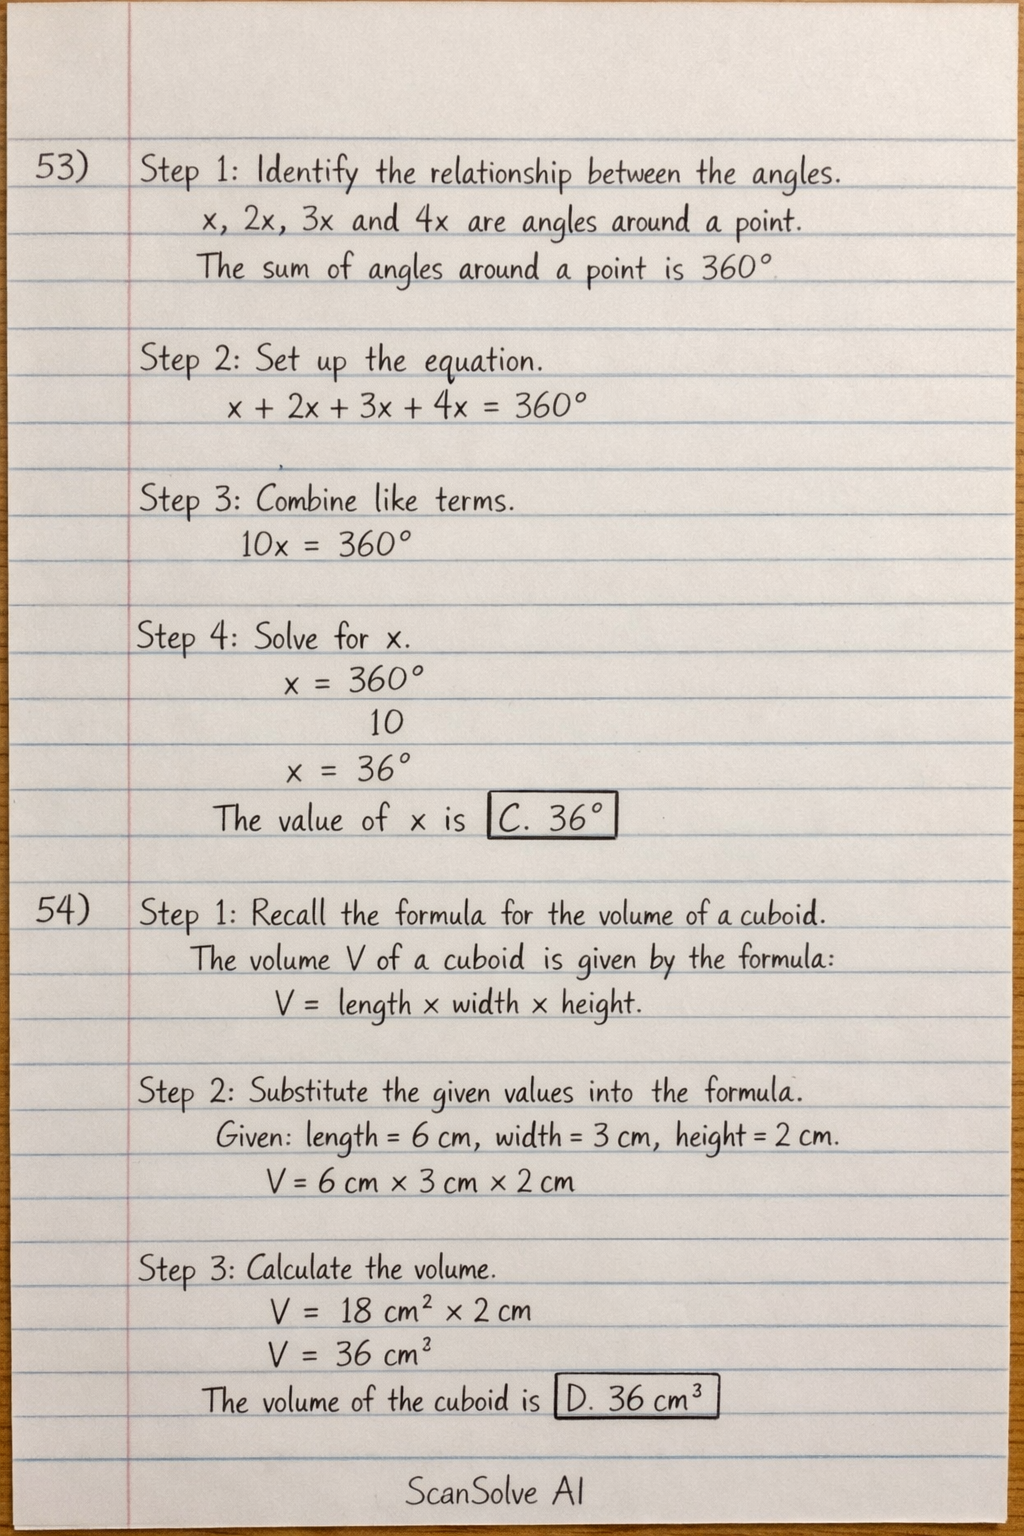 53) Step 1: Identify the relationship between the angles.
x, 2x, 3x and 4x are angles around a point.
The sum of angles around a point is 360°
Step 2: Set up the equation.
x + 2x + 3x + 4x = 360°
Step 3: Combine like terms.
10x = 360°
Step 4: Solve for x.
x = 360°
10
x = 36°
The value of x is C. 36°
54) Step 1: Recall the formula for the volume of a cuboid.
The volume V of a cuboid is given by the formula:
V = length × width × height.
Step 2: Substitute the given values into the formula.
Given: length = 6 cm, width = 3 cm, height = 2 cm.
V = 6 cm × 3 cm × 2 cm
Step 3: Calculate the volume.
V = 18 cm² × 2 cm
V = 36 cm³
The volume of the cuboid is D. 36 cm³
ScanSolve AI